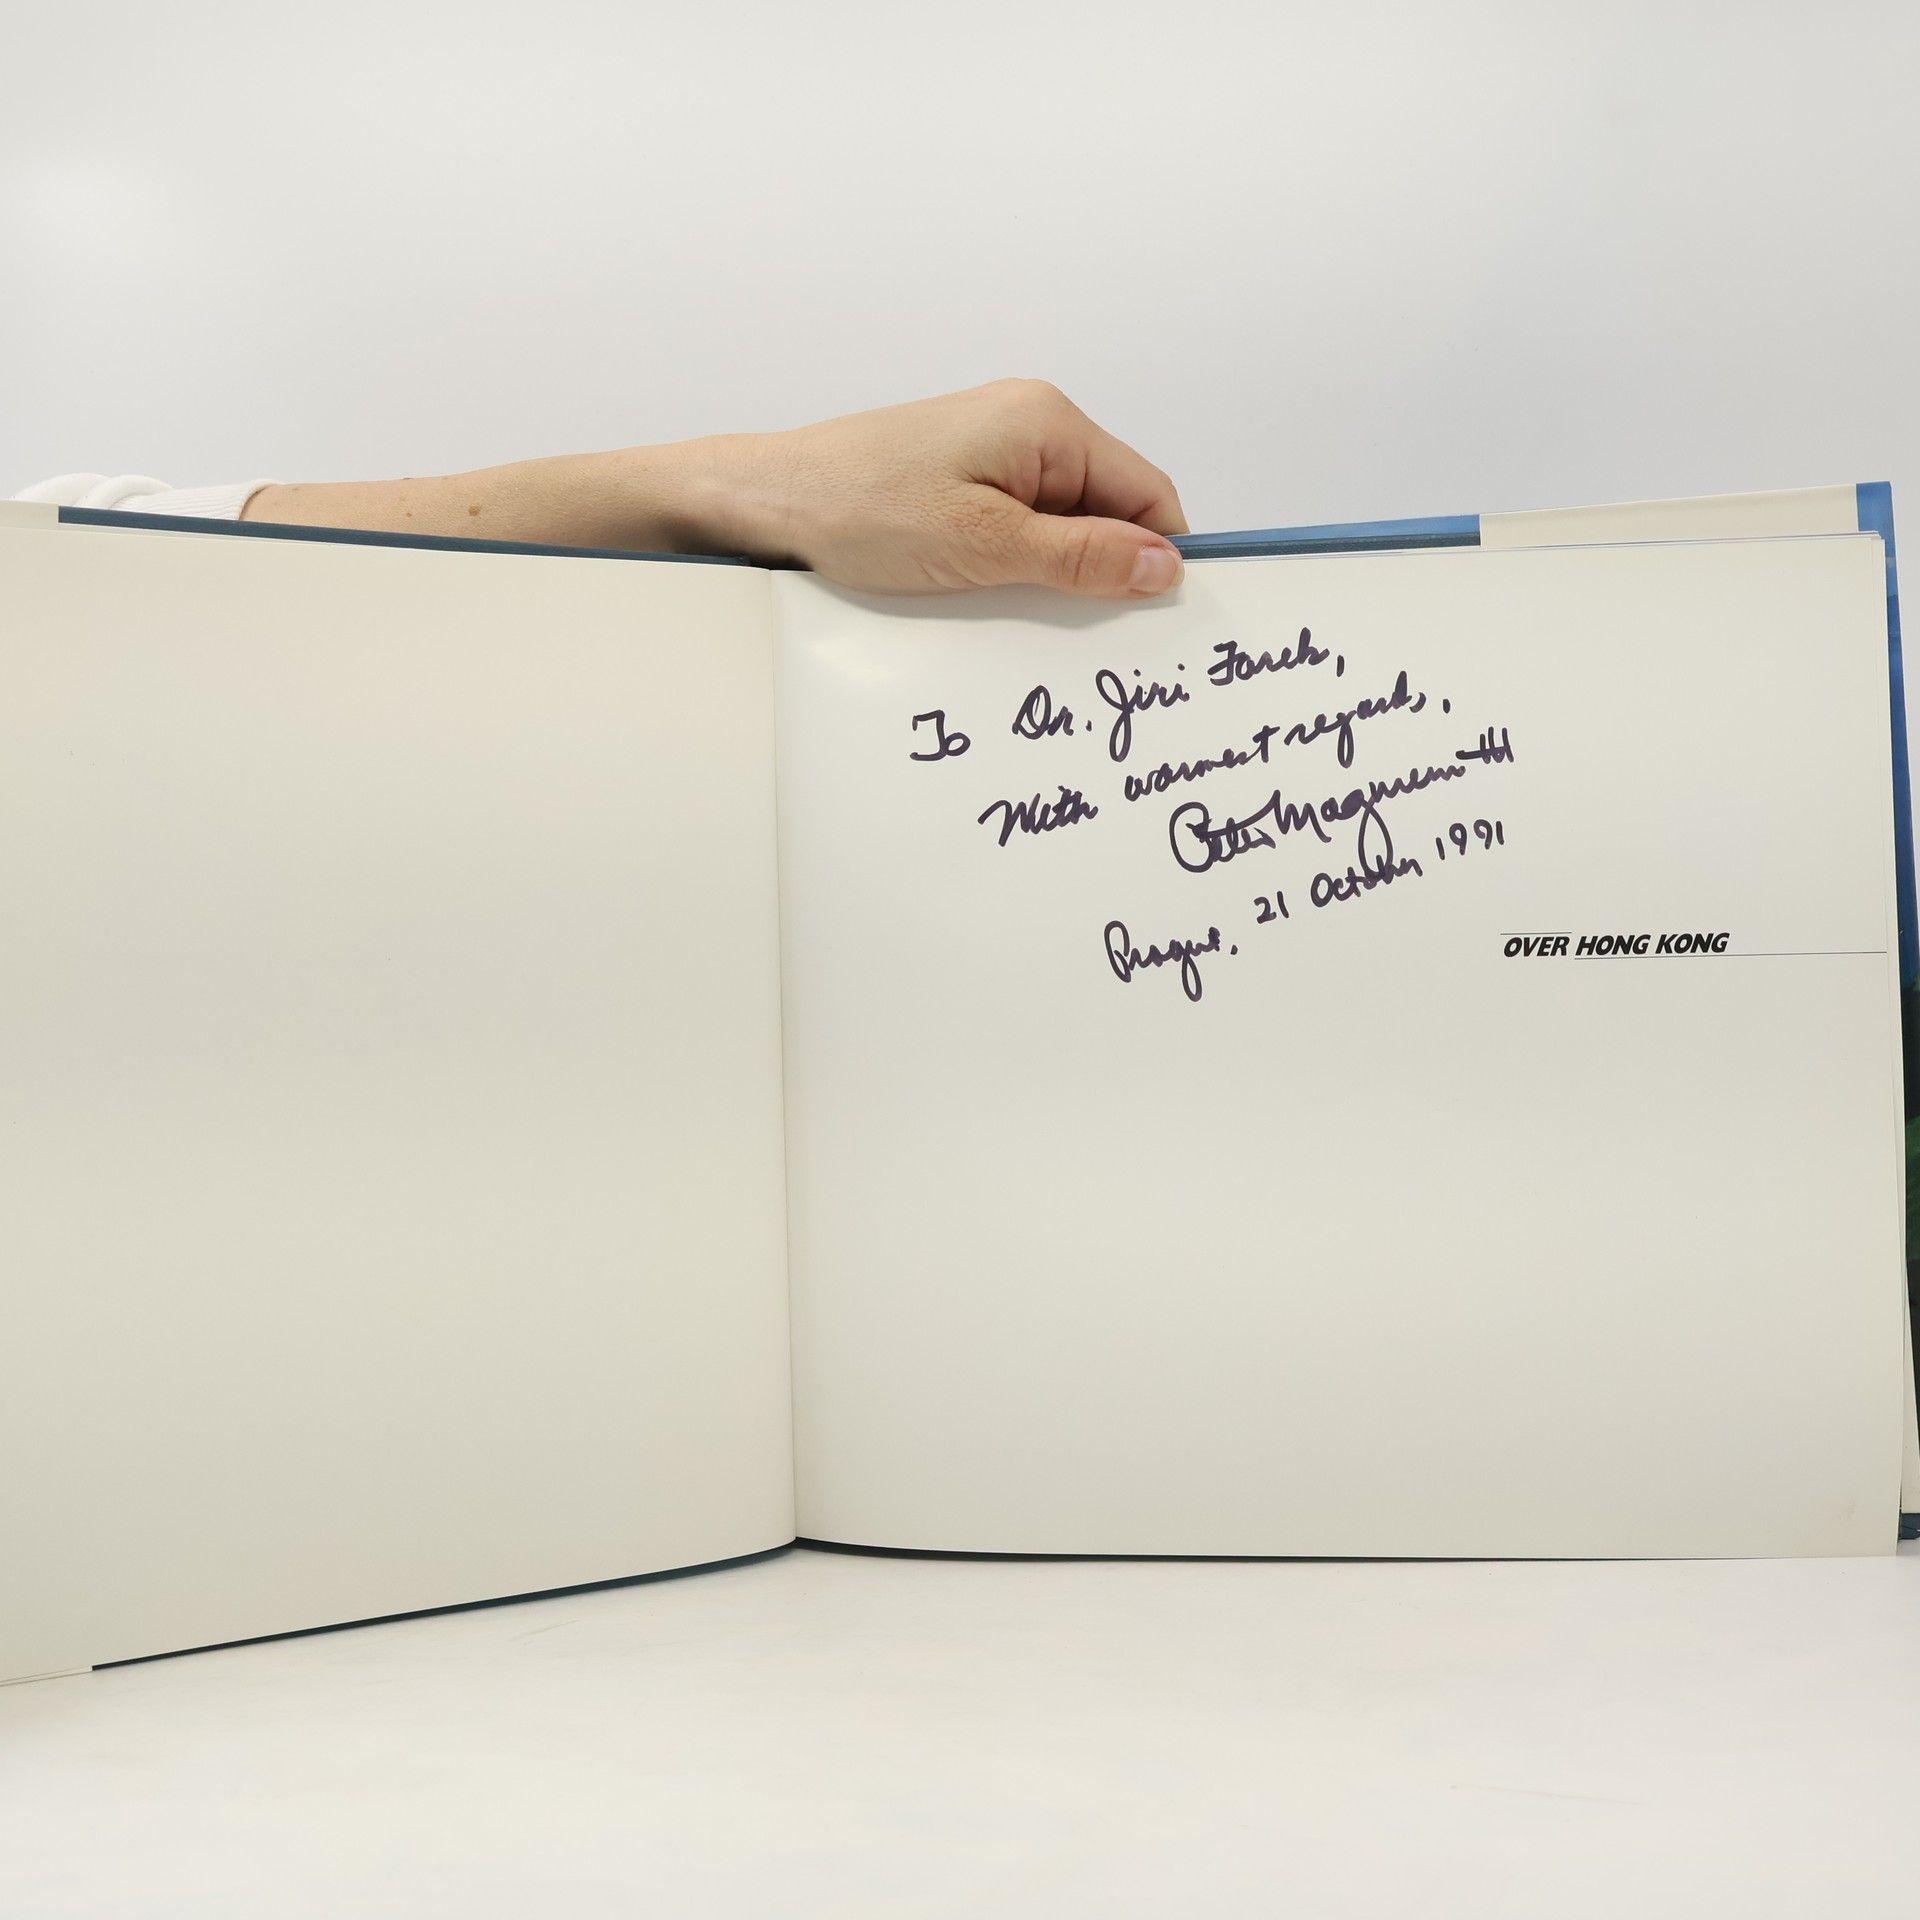 To Dr. Jiri Farek,
With warmest regards,
Peter III
Prague, 21 October 1991
OVER HONG KONG